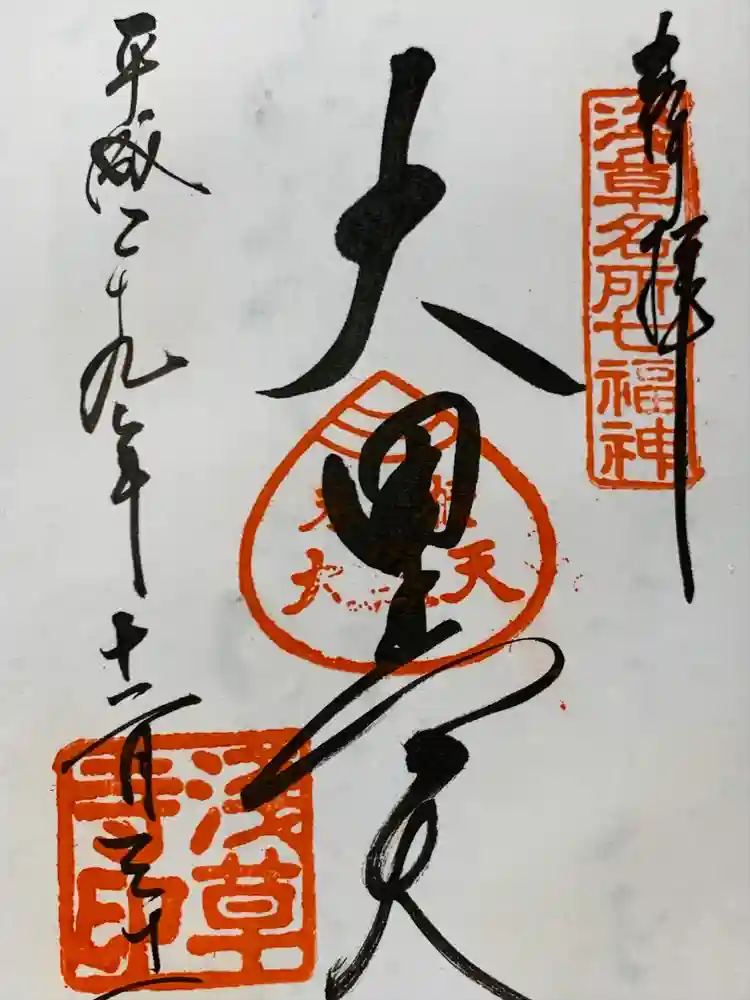 奉拝
浅草名所七福神
大黒天
大 天
平成二十九年十一月三十
浅草
寺印